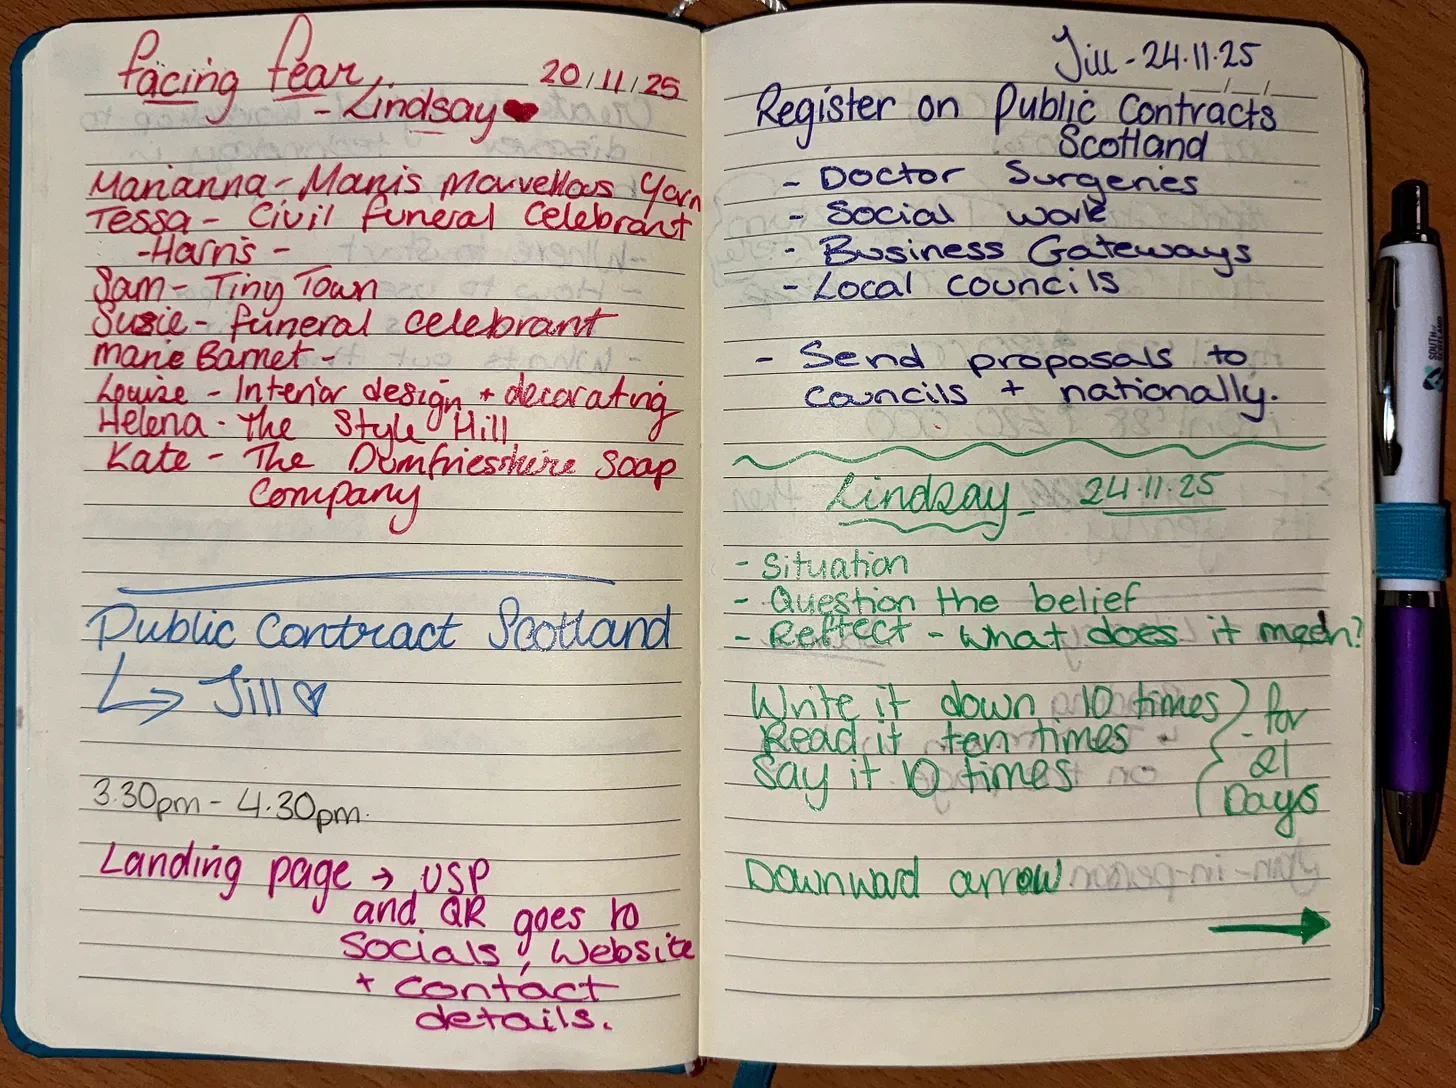 Facing fear,
20/11/25
- Lindsay
Marianna - Maris Marvellous Yarn
Tessa - Civil funeral Celebrant
- Harris -
Sam - Tiny Town
Susie - funeral celebrant
Marie Barnet -
Louise - Interior design + decorating
Helena - The Style Hill
Kate - The Dumfriesshire Soap
Company
Public Contract Scotland
Jill
3.30pm - 4.30pm.
Landing page → USP
and QR goes to
Socials, Website
+ contact
details.
Jill - 24.11.25
Register on Public Contracts
Scotland
- Doctor Surgeries
- Social work
- Business Gateways
- Local councils
- Send proposals to
councils + nationally.
Lindsay - 24.11.25
- Situation
- Question the belief
- Reflect - what does it mean?
Write it down 10 times
Read it ten times
Say it 10 times
- for
21
Days
Downward arrow
SOUTH